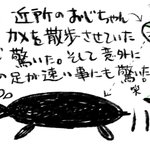 近所のおじちゃん
カメを散歩させていた
驚いた。そして意外に
の足が速い事にも驚いた。
笑